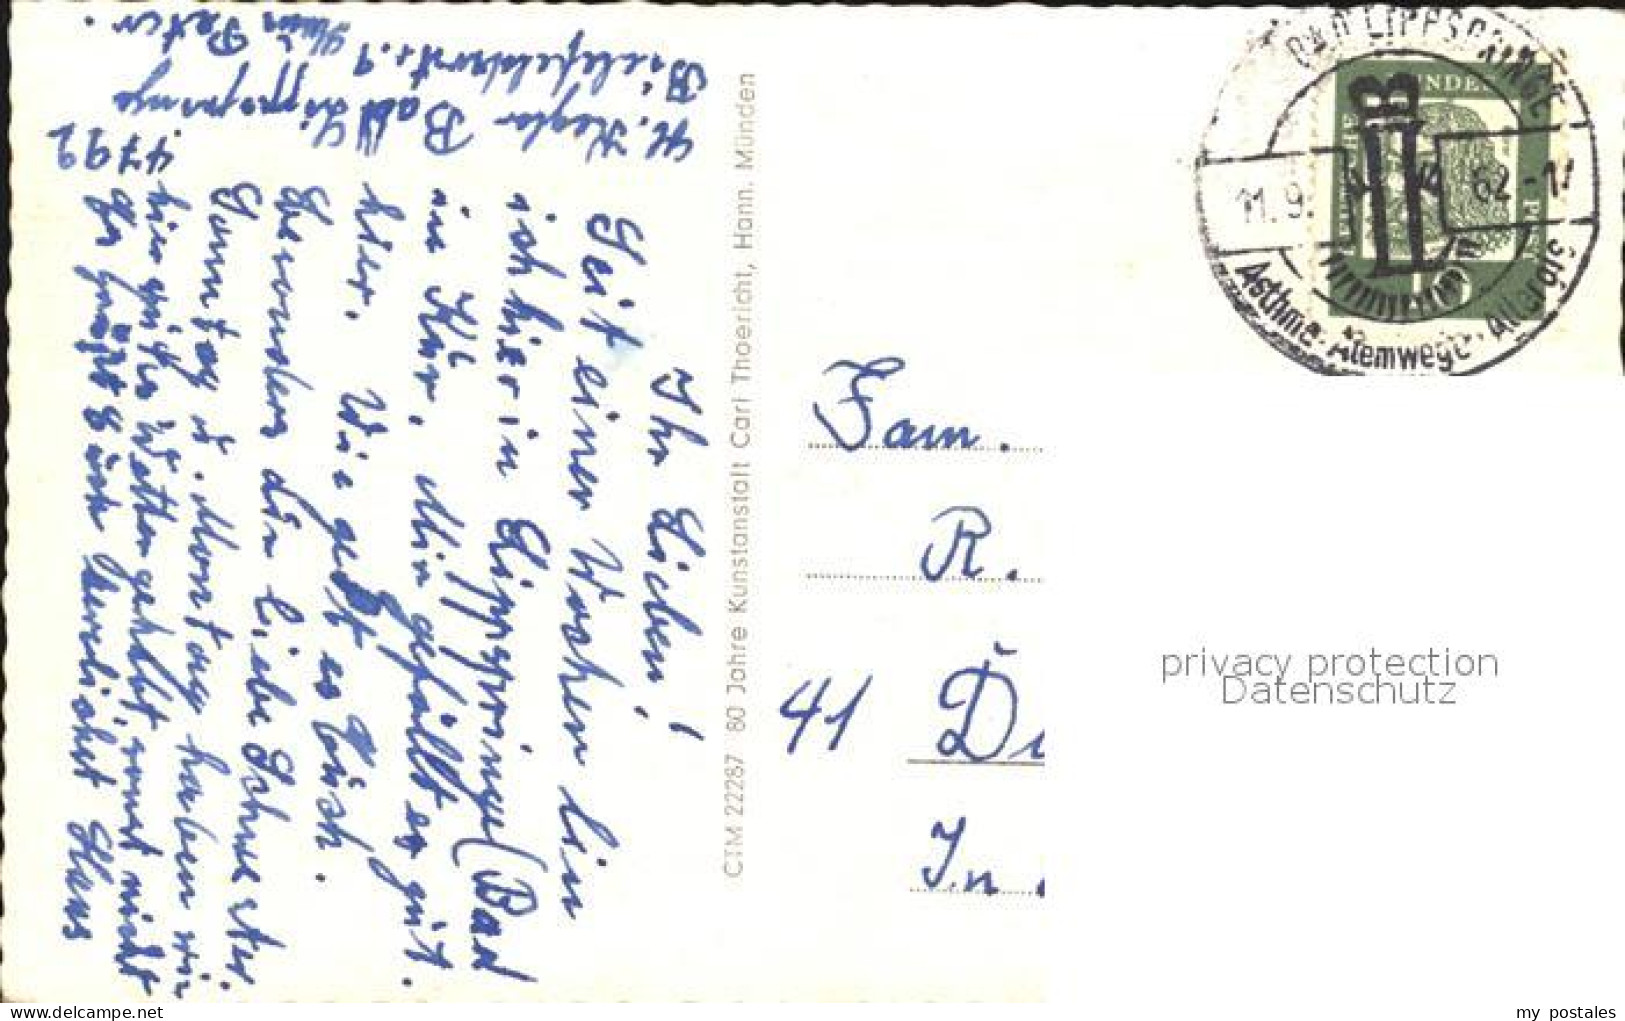 Ihr Lieben!
Seit einer Wochen bin
ich hier in Lippspringe (Bad
in Kur. Mir gefällt es gut
hier. Wie geht es Euch.
Besonders dir liebe Schwester.
Sonntag u. Montag haben wir
hier gutes Wetter gehabt, sonst nicht
Es grüßt Euch herzlichst Hans
4792
Bad Lippspringe
Bielefelderstr. 9
Peter.
CTM 22287 80 Jahre Kunstanstalt Carl Thoericht, Hann. Münden
BAD LIPPSPRINGE
11.9.62-1
Asthma · Atemwege · Allergie
Fam.
R.
41 Du
In
privacy protection
Datenschutz
delcampe.net
my_postales